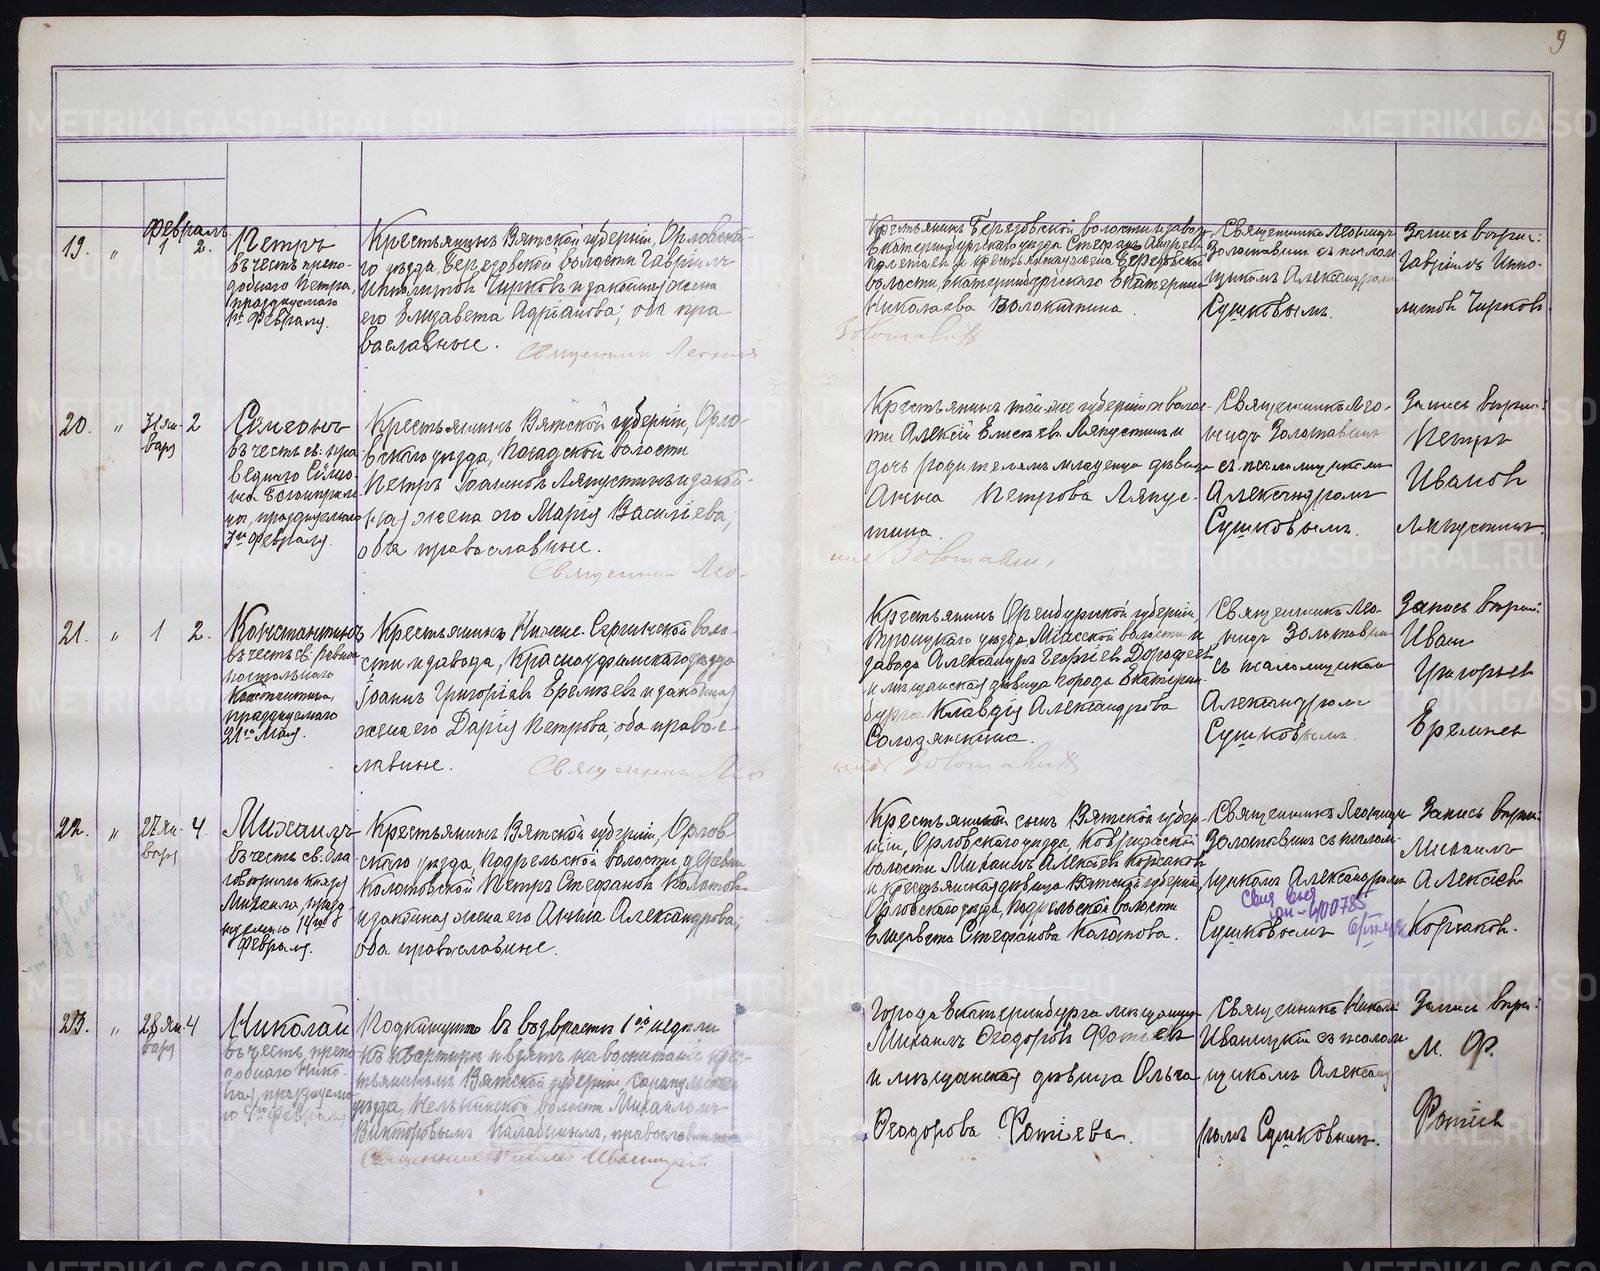 9
Февраль
19. " 1 2.
Петръ
въ честь препо-
добнаго Петра,
празднуемаго
1го Февраля.
Крестьянинъ Вятской губерніи, Орловска-
го уѣзда, Березовской волости Гавріилъ
Ипполитовъ Чирковъ и законная жена
его Елизавета Адріанова, оба пра-
вославные.
Священникъ Леонидъ
Крестьянинъ Березовской волости и завода
Екатеринбургскаго уѣзда Стефанъ Андреевъ
волости, Екатеринбургскаго Екатерина
Николаева Волокитина.
Золотавинъ
Священникъ Леонидъ
Золотавинъ съ псалом-
щикомъ Александромъ
Сушковымъ.
Запись вѣрна:
Гавріилъ Иппо-
литовъ Чирковъ.
20. " 31 Ян-
варя 2
Симеонъ
въ честь св. пра
веднаго Симео-
на Богопріим-
ца, празднуемаго
3го Февраля.
Крестьянинъ Вятской губерніи, Орло-
вскаго уѣзда, Посадской волости
Петръ Іоанновъ Ляпустинъ и закон-
ная жена его Марія Василіева,
оба православные.
Священникъ Лео-
Крестьянинъ той-же губерніи и волос-
ти Алексій Елисеевъ Ляпустинъ и
дочь родителямъ младенца дѣвица
Анна Петрова Ляпус-
тина.
нидъ Золотавинъ
Священникъ Лео-
нидъ Золотавинъ
съ псаломщикомъ
Александромъ
Сушковымъ.
Запись вѣрна:
Петръ
Ивановъ
Ляпустинъ.
21. " 1 2.
Константинъ
въ честь св. равно
апостольнаго
Константина,
празднуемаго
21го Мая.
Крестьянинъ Нижне-Сергинской воло-
сти и завода, Красноуфимскаго уѣзда
Іоаннъ Григоріевъ Еремѣевъ и законная
жена его Дарія Петрова, оба правос-
лавные.
Священникъ Лео
Крестьянинъ Оренбургской губерніи,
Троицкаго уѣзда, Міасской волости и
завода Александръ Георгіевъ Дорофеевъ
и мѣщанская дѣвица города Екатерин-
бурга Клавдія Александрова
Солодянкина.
нидъ Золотавинъ
Священникъ Лео-
нидъ Золотавинъ
съ псаломщикомъ
Александромъ
Сушковымъ.
Запись вѣрна:
Иванъ
Григорьевъ
Еремѣевъ
22. " 27 Ян-
варя 4.
Михаилъ
въ честь св. бла
говѣрнаго князя
Михаила, празд
нуемаго 14го
Февраля.
Крестьянинъ Вятской губерніи, Орлов
скаго уѣзда, Подрельской волости деревни
Колотовской Петръ Стефановъ Колотовъ
и законная жена его Анна Александрова,
оба православные.
Крестьянскій сынъ Вятской губер-
ніи, Орловскаго уѣзда,
волости Михаилъ Алексіевъ Корзаковъ
и крестьянская дѣвица Вятской губерніи,
Орловскаго уѣзда, Подрельской волости
Елизавета Стефанова Колотова.
Священникъ Леонидъ
Золотавинъ съ псалом-
щикомъ Александромъ
400785
Сушковымъ
Запись вѣрна:
Михаилъ
Алексіевъ
Корзаковъ.
23. " 28 Ян-
варя 4
Николай
въ честь препо
добнаго Нико-
лая, празднуема
го 4го Февраля
Подкинутъ въ возрасте 1ой недѣли
къ квартирѣ и взятъ на воспитаніе крес-
тьяниномъ Вятской губерніи, Сарапульскаго
уѣзда, волости Михаиломъ
Викторовымъ Калабинымъ, православнымъ
Священникъ Николай Иваницкій
Города Екатеринбурга мѣщанинъ
Михаилъ Ѳеодоровъ Фотіевъ
и мѣщанская дѣвица Ольга
Ѳеодорова Фотіева.
Священникъ Николай
Иваницкій съ псалом
щикомъ Александ
ромъ Сушковымъ.
Запись вѣрна:
М. Ф.
Фотіев